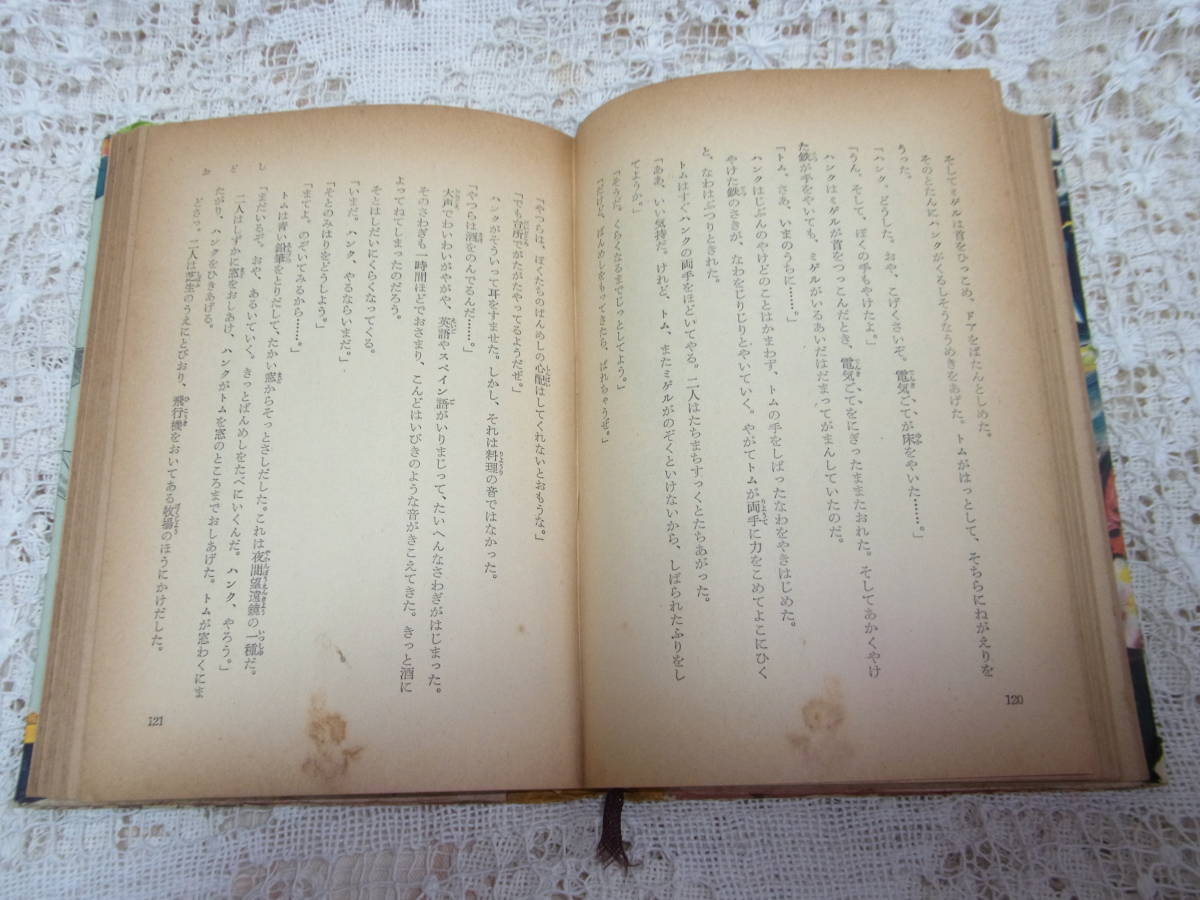 そしてミゲルは首をひっこめ、ドアをばたんとしめた。
そのとたんにハンクがくるしそうなうめきをあげた。トムがはっとして、そちらにねがえりを
うった。
「ハンク、どうした。おや、こげくさいぞ。電気ごてが床をやいた……。」
「うん、そして、ぼくの手もやけたよ。」
ハンクはミゲルが首をつっこんだとき、電気ごてをにぎったままたおれた。そしてあかくやけ
た鉄が手をやいても、ミゲルがいるあいだはだまってがまんしていたのだ。
「トム、さあ、いまのうちに……。」
ハンクはじぶんのやけどのことはかまわず、トムの手をしばったなわをやきはじめた。
やけた鉄のさきが、なわをじりじりとやいていく。やがてトムが両手に力をこめてよこにひく
と、なわはぷつりときれた。
トムはすぐハンクの両手をほどいてやる。二人はたちまちすっくとたちあがった。
「ああ、いい気持だ。けれど、トム、またミゲルがのぞくといけないから、しばられたふりをし
てようか。」
「そうだ。くらくなるまでじっとしてよう。」
「だけど、ばんめしをもってきたら、ばれちゃうぜ。」
120
「やつらは、ぼくたちのばんめしの心配はしてくれないとおもうな。」
「でも台所でがたがたやってるようだぜ。」
ハンクがそういって耳をすませた。しかし、それは料理の音ではなかった。
「やつらは酒をのんでるんだ……。」
大声でわいわいがやがや、英語やスペイン語がいりまじって、たいへんなさわぎがはじまった。
そのさわぎも一時間ほどでおさまり、こんどはいびきのような音がきこえてきた。きっと酒に
よってねてしまったのだろう。
そとはしだいにくらくなってくる。
「いまだ。ハンク、やるならいまだ。」
「そとのみはりをどうしよう。」
「まてよ。のぞいてみるから……。」
トムは青い鉛筆をとりだして、たかい窓からそっとさしだした。これは夜間望遠鏡の一種だ。
「まだいるぞ。おや、あるいていく。きっとばんめしをたべにいくんだ。ハンク、やろう。」
二人はしずかに窓をおしあけ、ハンクがトムを窓のところまでおしあげた。トムが窓わくにま
たがり、ハンクをひきあげる。
どさっ。二人は芝生のうえにとびおり、飛行機をおいてある牧場のほうにかけだした。
121